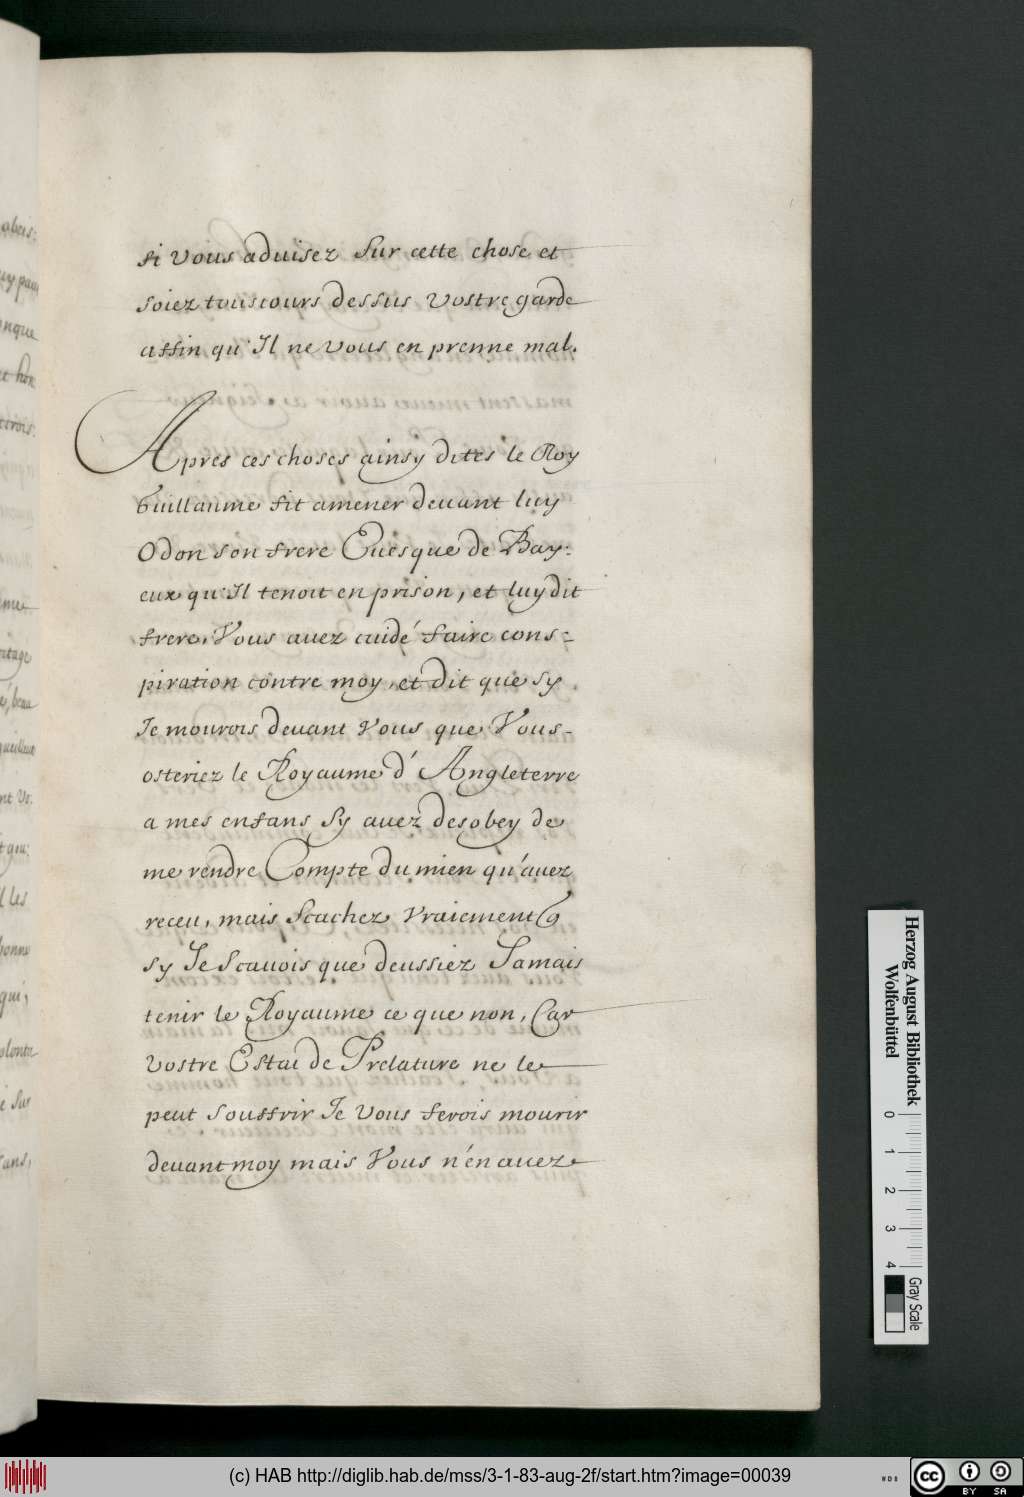 si vous aduisez sur cette chose et
soiez touscours dessus vostre garde
affin qu'Il ne vous en prenne mal.
Apres ces choses ainsy dittes le Roy
Guillaume fit amener deuant luy
Odon son frere Euesque de Bay:
eux qu'Il tenoit en prison, et luy dit
frere, Vous auez cuidé faire cons-
piration contre moy, et dit que sy
Je mourois deuant vous que Vous-
osteriez le Royaume d'Angleterre
a mes enfans sy auez desobey de
me rendre Compte du mien qu'auez
receu, mais scachez vraiement
sy Je scauois que deussiez Jamais
tenir le Royaume ce que non, Car
vostre Estat de Prelature ne le
peut souffrir Je vous ferois mourir
deuant moy mais Vous n'en auez
Herzog August Bibliothek
Wolfenbüttel
0 1 2 3 4
Gray Scale
(c) HAB http://diglib.hab.de/mss/3-1-83-aug-2f/start.htm?image=00039
WDB
cc BY SA